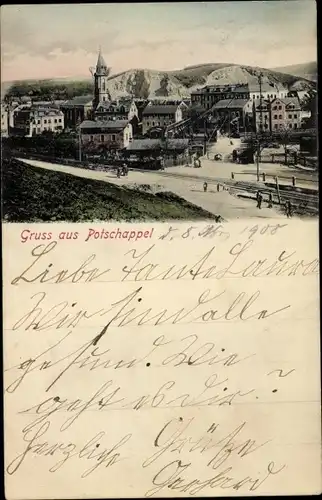 Gruss aus Potschappel d. 8. Nov. 1900
Liebe Tante Laura
Wir sind alle
gesund. Wie
geht es dir?
Herzliche Grüße
Gerhard